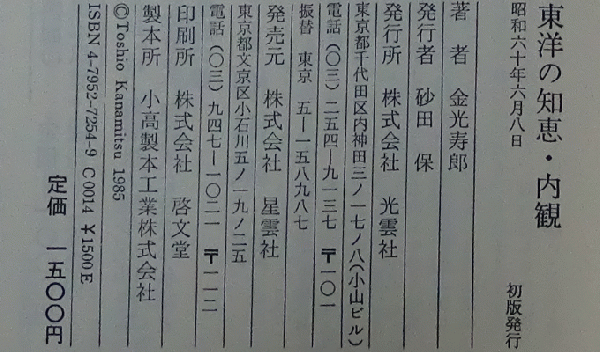 東洋の知恵・内観
昭和六十年六月八日 初版発行
著者 金光寿郎
発行者 砂田 保
発行所 株式会社 光雲社
東京都千代田区内神田三ノ一七ノ八(小山ビル)
電話(〇三)二五四ー九一三七 〒一〇一
振替 東京 五ー一五八九八七
発売元 株式会社 星雲社
東京都文京区小石川五ノ一九ノ二五
電話(〇三)九四七ー一〇二一 〒一一二
印刷所 株式会社 啓文堂
製本所 小高製本工業株式会社
©Toshio Kanamitsu 1985
ISBN 4-7952-7254-9 C0014 ¥1500E
定価 一五〇〇円